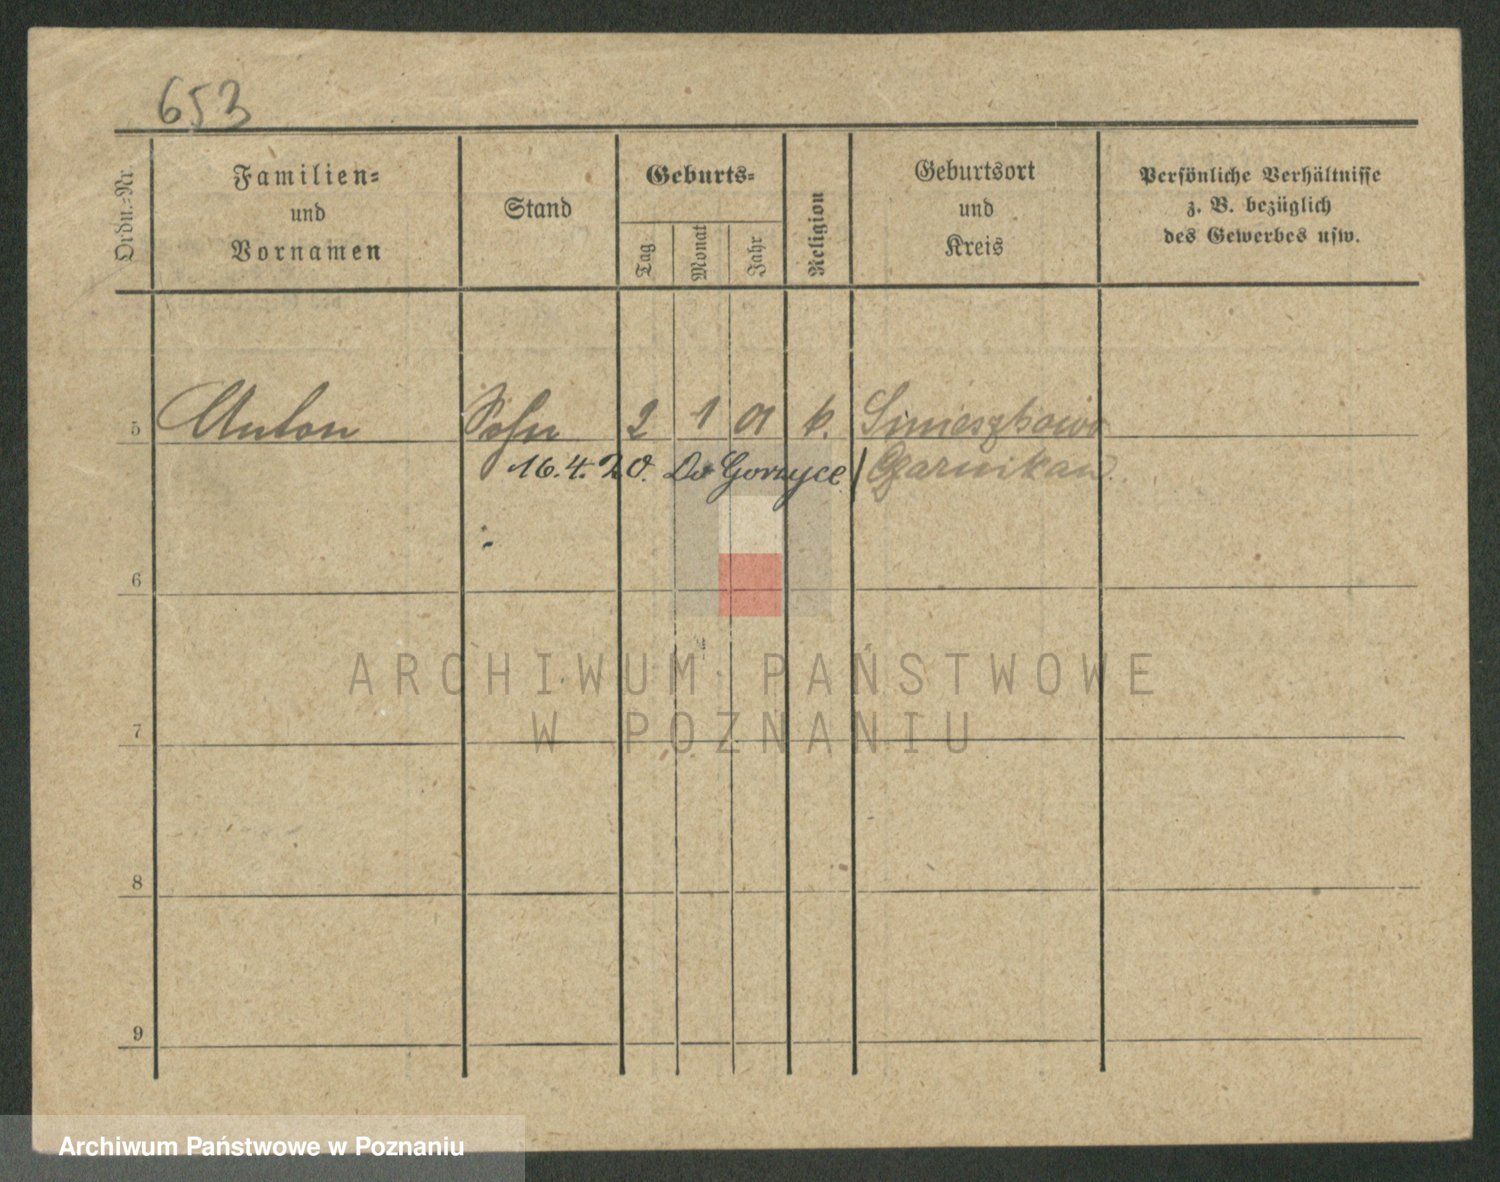 653
Ordn.-Nr.
Familien-
und
Vornamen
Stand
Geburts-
Tag
Monat
Jahr
Religion
Geburtsort
und
Kreis
Persönliche Verhältnisse
z. B. bezüglich
des Gewerbes usw.
5 Anton Sohn 2 1 01 k.
16.4.20. Do Gorzyce Czarnikau.
6
7
8
9
ARCHIWUM PAŃSTWOWE
W POZNANIU
Archiwum Państwowe w Poznaniu